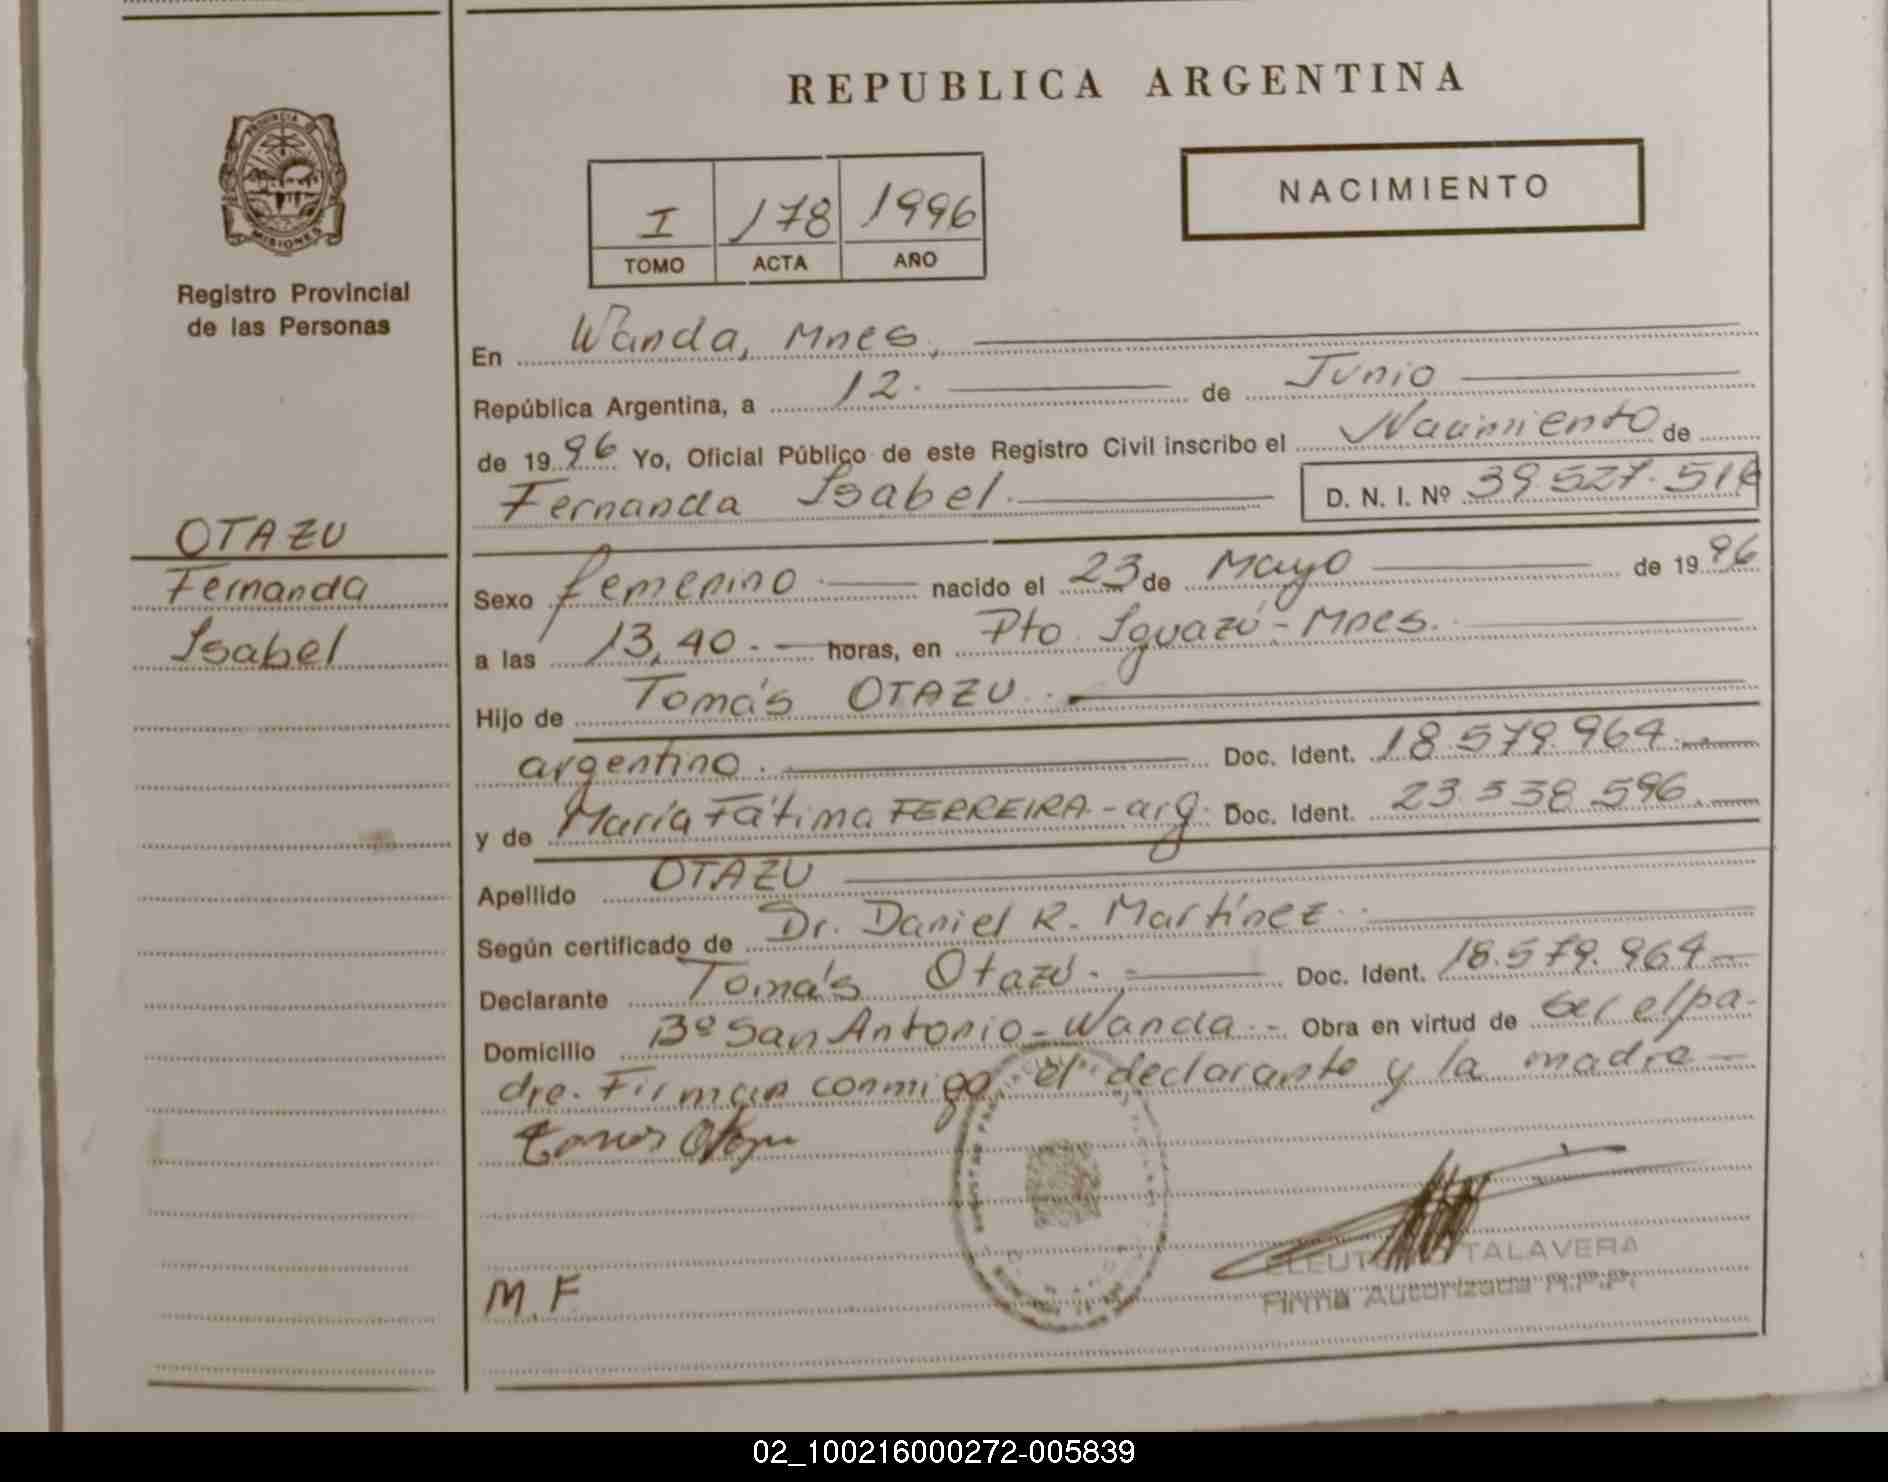 REPUBLICA ARGENTINA
PROVINCIA DE
MISIONES
Registro Provincial
de las Personas
I 178 1996
TOMO ACTA AÑO
NACIMIENTO
En Wanda, Mnes,
República Argentina, a 12. de Junio
de 1996 Yo, Oficial Público de este Registro Civil inscribo el Nacimiento de
Fernanda Isabel. D. N. I. Nº
OTAZU
Fernanda
Isabel
Sexo femenino. nacido el 23 de Mayo de 1996
a las 13,40. horas, en Pto. Iguazú - Mnes.
Hijo de Tomás OTAZU.
argentino. Doc. Ident. 18.579.964.
y de María Fátima FERREIRA - arg. Doc. Ident. 23.338.596.
Apellido OTAZU
Según certificado de Dr. Daniel R. Martínez.
Declarante Tomás Otazú. Doc. Ident. 18.579.964
Domicilio Bº San Antonio - Wanda. - Obra en virtud de ser el pa-
dre. Firman conmigo el declarante y la madre
M. F
TALAVERA
Firma Autorizada R.P.P.
02_100216000272-005839